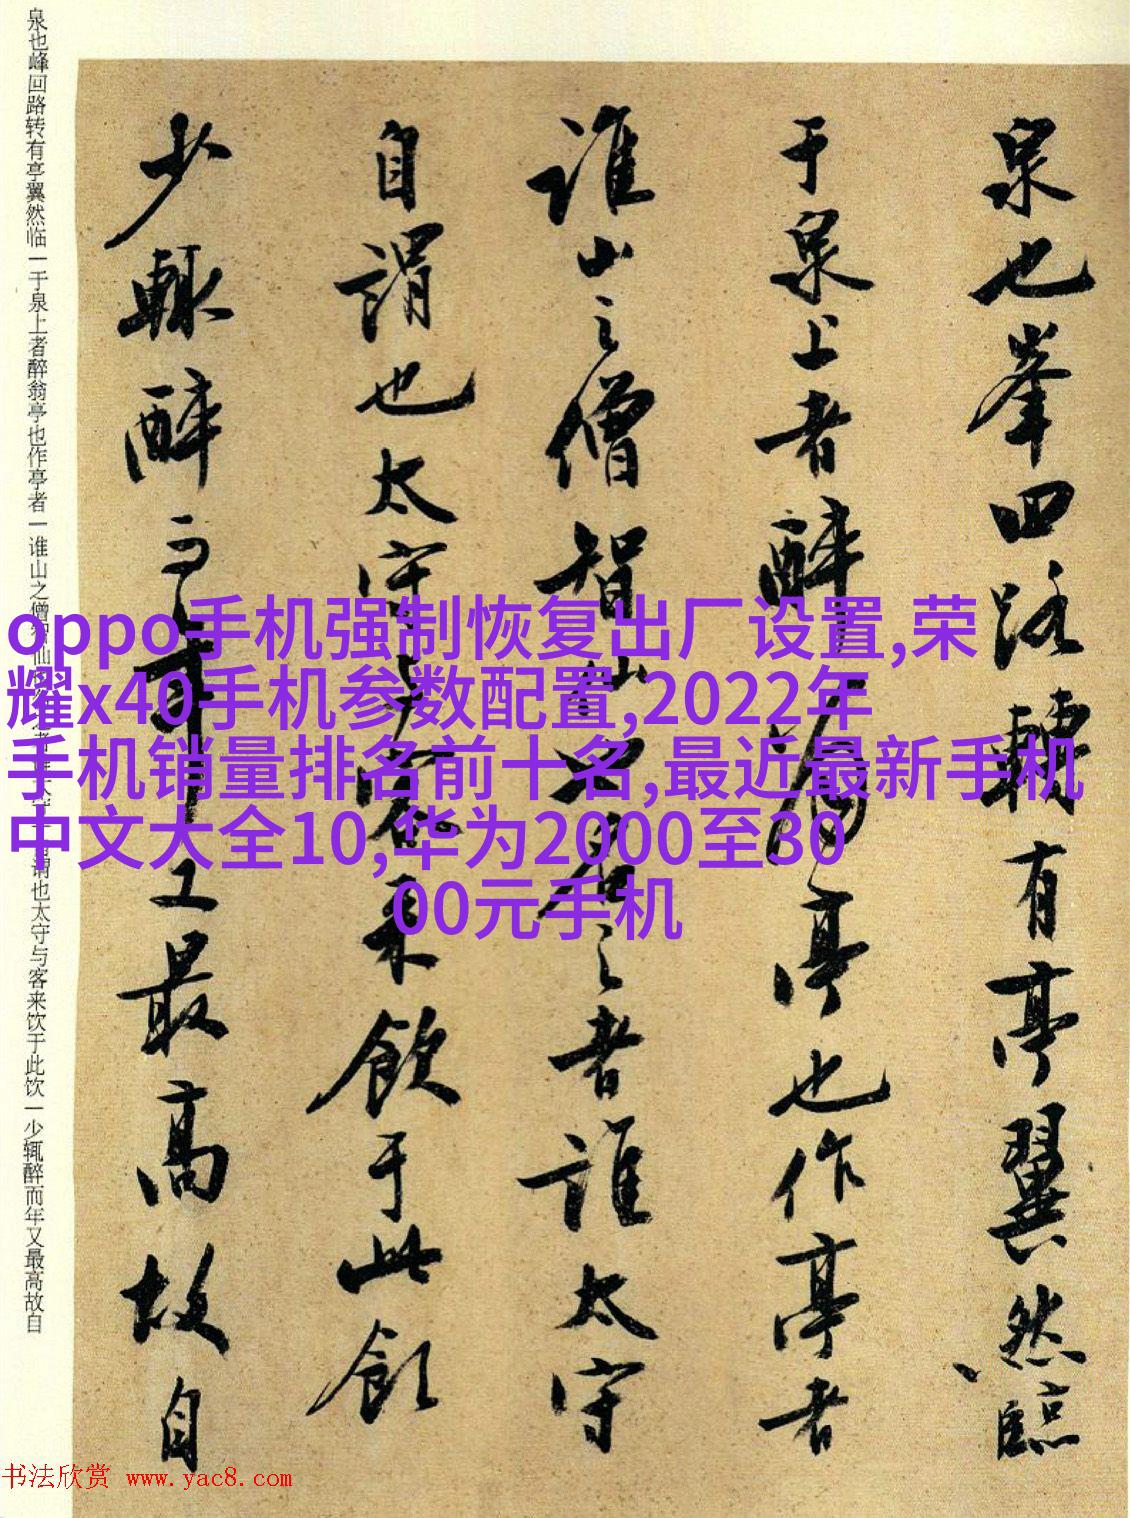 泉也峯回路轉有亭翼然臨
于泉上者醉翁亭也作亭者
誰山之僧智仙也名之者誰太守
自謂也太守与客來飲于此飲
少輙醉而年又最高故自
泉也峰回路转有亭翼然临一于泉上者醉翁亭也作亭者一谁山之僧智仙也名之者谁太守一自谓也太守与客来饮于此饮一少辄醉而年又最高故自
oppo手机强制恢复出厂设置,荣
耀x40手机参数配置,2022年
手机销量排名前十名,最近最新手机
中文大全10,华为2000至30
00元手机
书法欣赏 www.yac8.com